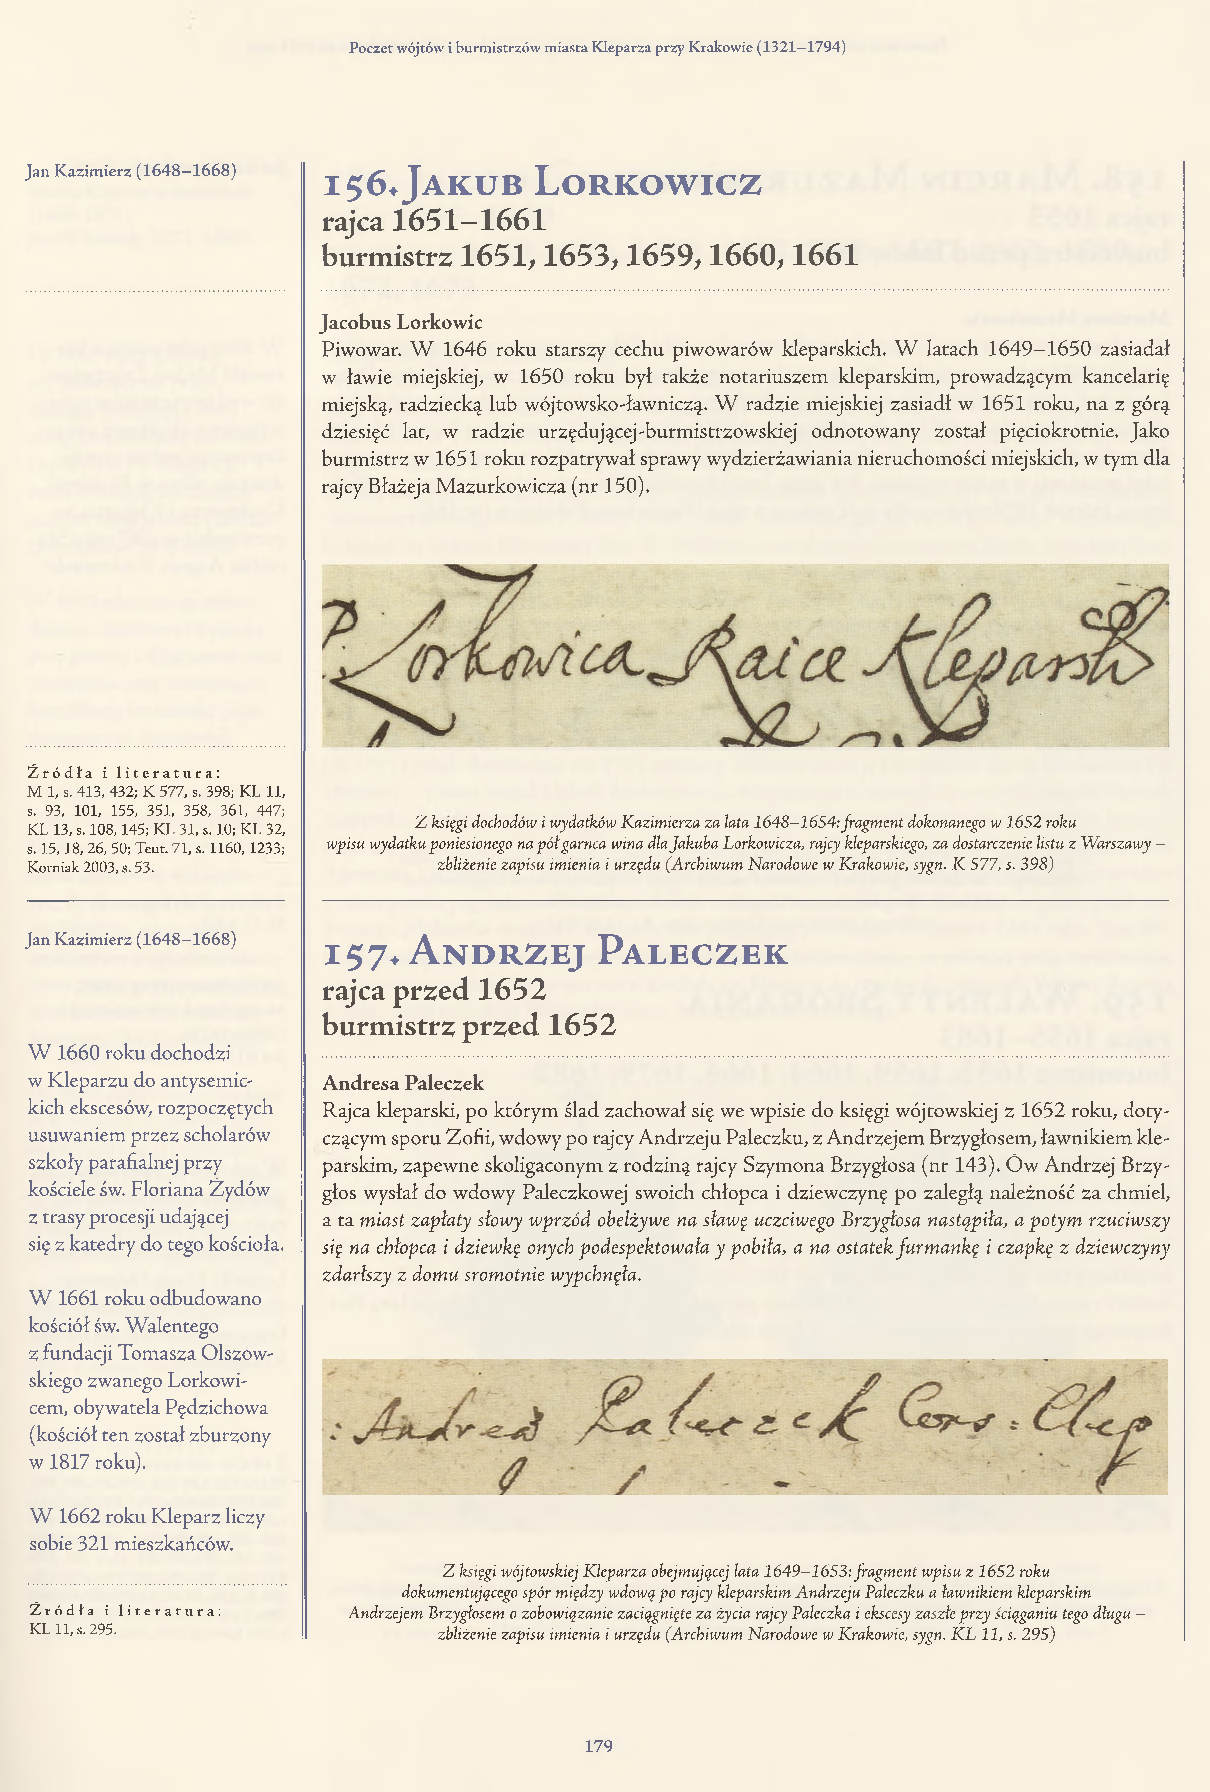 Poczet wójtów i burmistrzów miasta Kleparza przy Krakowie (1321–1794)
Jan Kazimierz (1648–1668)
156. Jakub Lorkowicz
rajca 1651–1661
burmistrz 1651, 1653, 1659, 1660, 1661
Jacobus Lorkowic
Piwowar. W 1646 roku starszy cechu piwowarów kleparskich. W latach 1649–1650 zasiadał
w ławie miejskiej, w 1650 roku był także notariuszem kleparskim, prowadzącym kancelarię
miejską, radziecką lub wójtowsko-ławniczą. W radzie miejskiej zasiadł w 1651 roku, na z górą
dziesięć lat, w radzie urzędującej-burmistrzowskiej odnotowany został pięciokrotnie. Jako
burmistrz w 1651 roku rozpatrywał sprawy wydzierżawiania nieruchomości miejskich, w tym dla
rajcy Błażeja Mazurkowicza (nr 150).
P. Lorkowica Raice Kleparsk
Źródła i literatura:
M 1, s. 413, 432; K 577, s. 398; KL 11,
s. 93, 101, 155, 351, 358, 361, 447;
KL 13, s. 108, 145; KL 31, s. 10; KL 32,
s. 15, 18, 26, 50; Teut. 71, s. 1160, 1233;
Korniak 2003, s. 53.
Z księgi dochodów i wydatków Kazimierza za lata 1648–1654: fragment dokonanego w 1652 roku
wpisu wydatku poniesionego na pół garnca wina dla Jakuba Lorkowicza, rajcy kleparskiego, za dostarczenie listu z Warszawy –
zbliżenie zapisu imienia i urzędu (Archiwum Narodowe w Krakowie, sygn. K 577, s. 398)
Jan Kazimierz (1648–1668)
W 1660 roku dochodzi
w Kleparzu do antysemic-
kich ekscesów, rozpoczętych
usuwaniem przez scholarów
szkoły parafialnej przy
kościele św. Floriana Żydów
z trasy procesji udającej
się z katedry do tego kościoła.
W 1661 roku odbudowano
kościół św. Walentego
z fundacji Tomasza Olszow-
skiego zwanego Lorkowi-
cem, obywatela Pędzichowa
(kościół ten został zburzony
w 1817 roku).
W 1662 roku Kleparz liczy
sobie 321 mieszkańców.
Źródła i literatura:
KL 11, s. 295.
157. Andrzej Paleczek
rajca przed 1652
burmistrz przed 1652
Andresa Paleczek
Rajca kleparski, po którym ślad zachował się we wpisie do księgi wójtowskiej z 1652 roku, doty-
czącym sporu Zofii, wdowy po rajcy Andrzeju Paleczku, z Andrzejem Brzygłosem, ławnikiem kle-
parskim, zapewne skoligaconym z rodziną rajcy Szymona Brzygłosa (nr 143). Ów Andrzej Brzy-
głos wysłał do wdowy Paleczkowej swoich chłopca i dziewczynę po zaległą należność za chmiel,
a ta miast zapłaty słowy wprzód obelżywe na sławę uczciwego Brzygłosa nastąpiła, a potym rzuciwszy
się na chłopca i dziewkę onych podespektowała y pobiła, a na ostatek furmankę i czapkę z dziewczyny
zdarłszy z domu sromotnie wypchnęła.
: Andreas Paleczek Cons: Clep
Z księgi wójtowskiej Kleparza obejmującej lata 1649–1653: fragment wpisu z 1652 roku
dokumentującego spór między wdową po rajcy kleparskim Andrzeju Paleczku a ławnikiem kleparskim
Andrzejem Brzygłosem o zobowiązanie zaciągnięte za życia rajcy Paleczka i ekscesy zaszłe przy ściąganiu tego długu –
zbliżenie zapisu imienia i urzędu (Archiwum Narodowe w Krakowie, sygn. KL 11, s. 295)
179